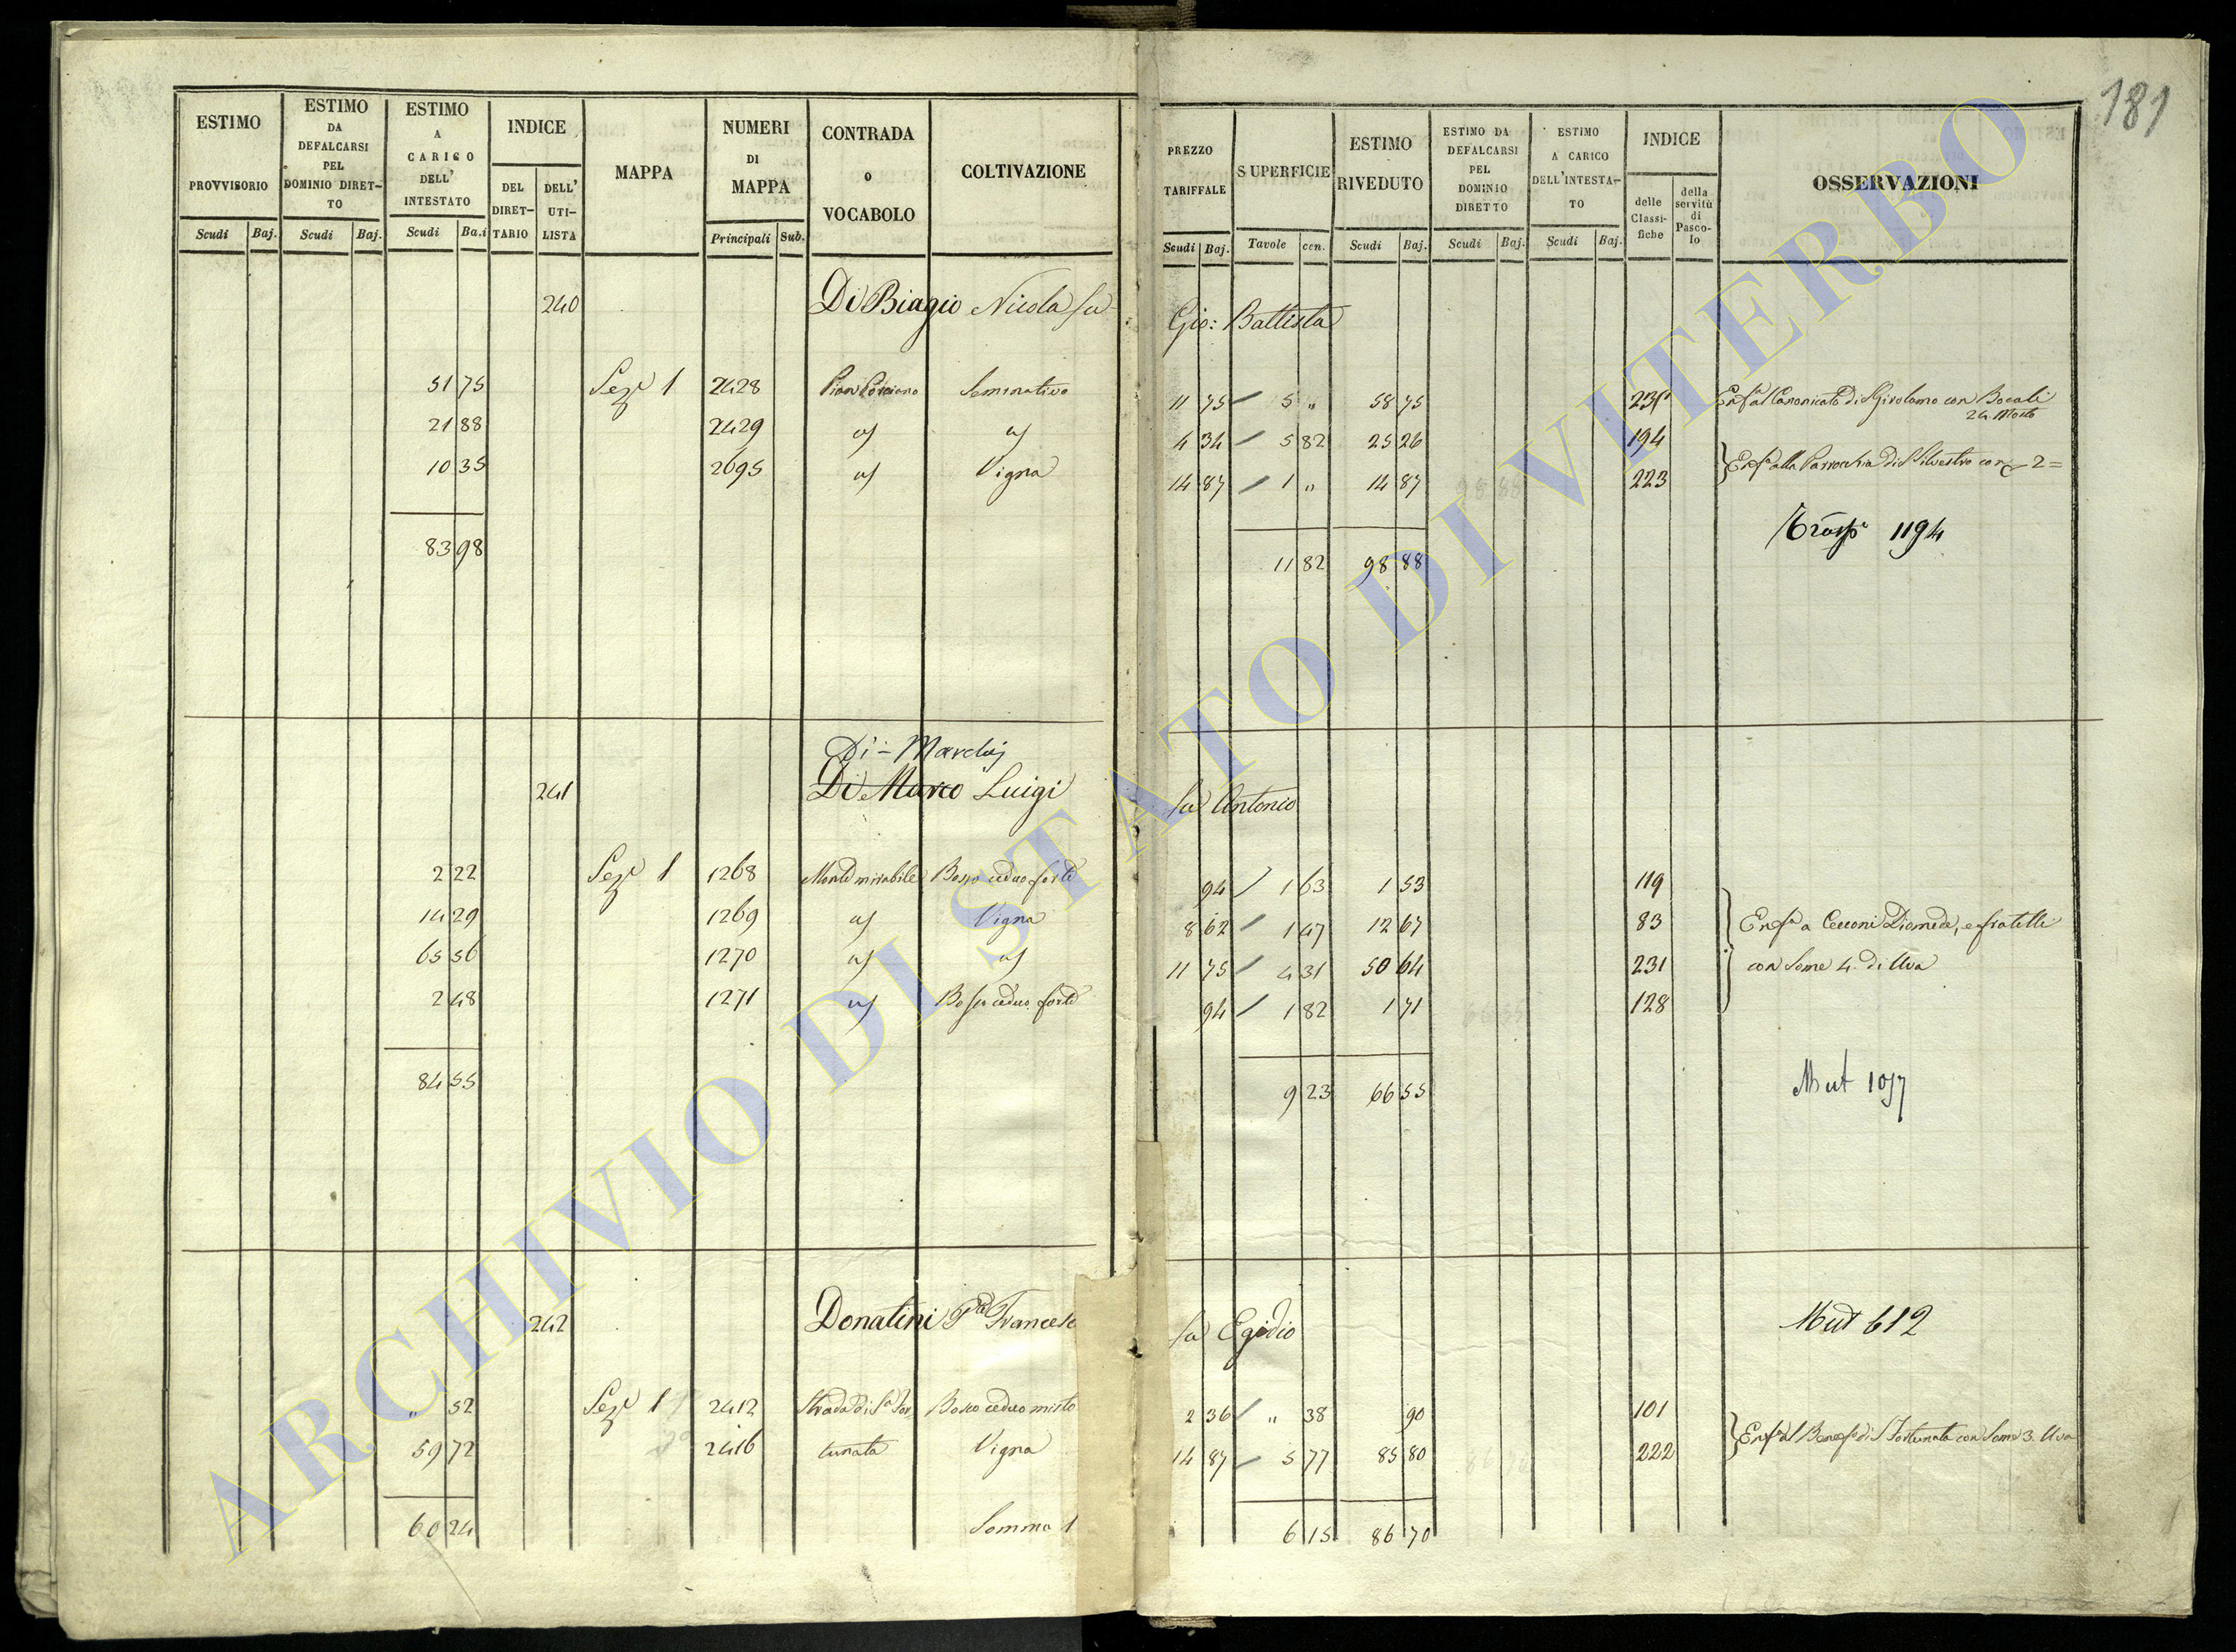 181
ESTIMO PROVVISORIO | ESTIMO DA DEFALCARSI PEL DOMINIO DIRETTO | ESTIMO A CARICO DELL' INTESTATO | INDICE | MAPPA | NUMERI DI MAPPA | CONTRADA O VOCABOLO | COLTIVAZIONE | PREZZO TARIFFALE | SUPERFICIE | ESTIMO RIVEDUTO | ESTIMO DA DEFALCARSI PEL DOMINIO DIRETTO | ESTIMO A CARICO DELL'INTESTATO | INDICE | OSSERVAZIONI
DEL DIRETTARIO | DELL' UTILISTA | delle Classifiche | della servitù di Pascolo
Scudi | Baj. | Scudi | Baj. | Scudi | Ba.i | Principali | Sub. | Scudi | Baj. | Tavole | cen. | Scudi | Baj. | Scudi | Baj. | Scudi | Baj.
240 Di Biagio Nicola fu Gio: Battista
51 75 Sez.e 1 2428 Seminativo 11 75 / 5 " 58 75 231 Enf.a al Canonicato di S Girolamo con Bocali
24. Mosto
21 88 2429 a/ a/ 4 34 / 5 82 25 26 194
10 35 2695 a/ Vigna 14 87 / 1 " 14 87 223 Enf.a alla Parrocchia di S Silvestro con 2 =
1194
83 98 11 82 98 88
Di - Marchi
241 Di Marco Luigi fu Antonio
2 22 Sez.e 1 1268 Monte mirabile Bosco ceduo forte 94 / 1 63 1 53 119
14 29 1269 a/ Vigna 8 62 / 1 47 12 67 83 Enf.a a Cecconi Diomede, e fratelli
65 56 1270 a/ a/ 11 75 / 4 31 50 64 231 con Some 4. di Uva
2 48 1271 a/ Bosco ceduo forte 94 / 1 82 1 71 128
84 55 9 23 66 55 Mut 1057
242 Donatini Francesco fu Egidio Mut 612
" 52 Sez.e 1 2412 Strada di S.a For Bosco ceduo misto 2 36 / " 38 90 101
59 72 2416 tunata Vigna 14 87 / 5 77 85 80 222 Enf.a al Benef.o di S Fortunata con Some 3. Uva
60 24 Somma 6 15 86 70
ARCHIVIO DI STATO DI VITERBO